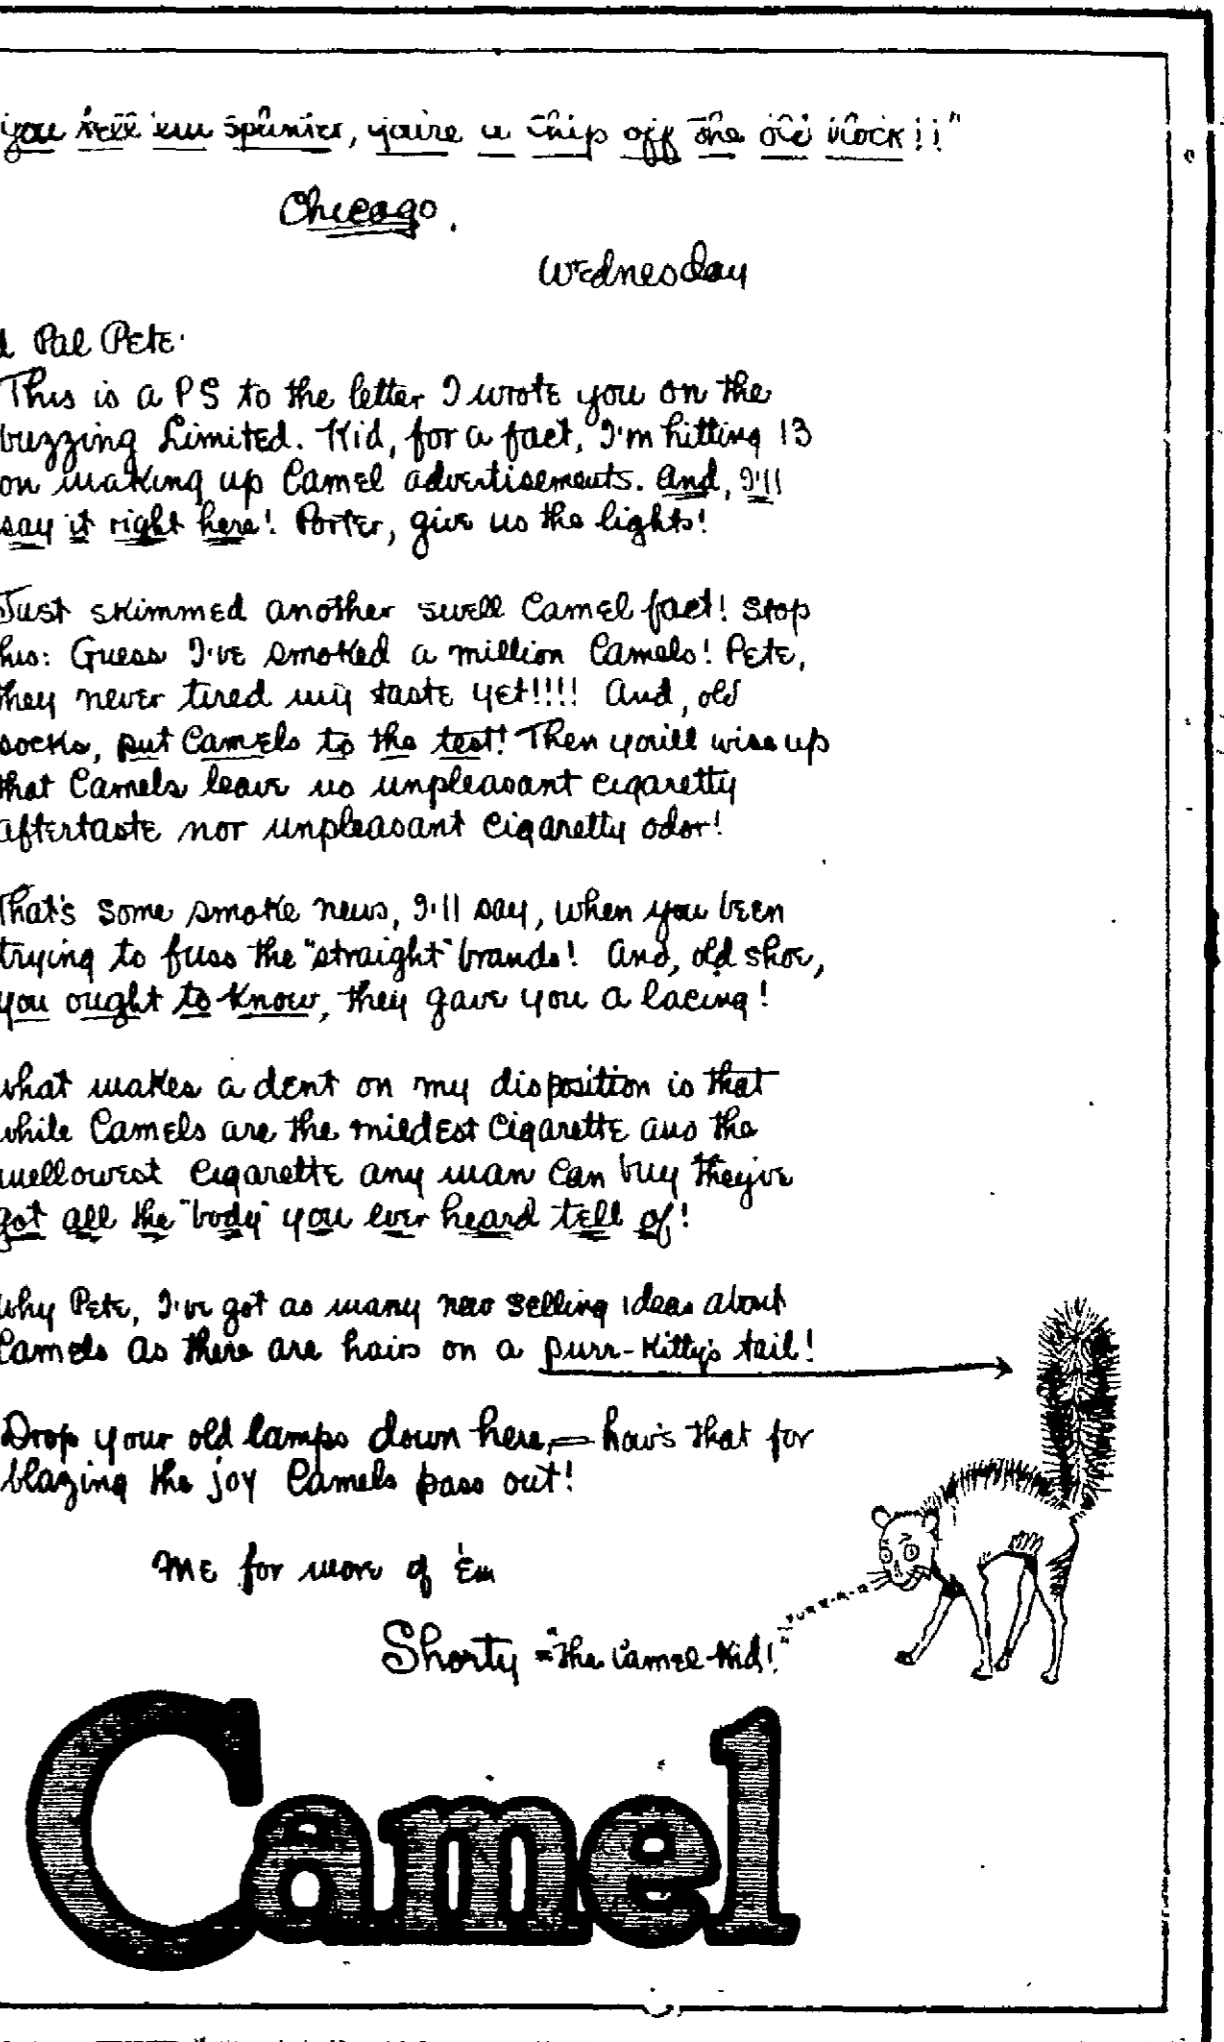 you tell 'em splinter, you're a chip off the old block!!"
Chicago.
Wednesday
Pal Pete.
This is a PS to the letter I wrote you on the
buzzing Limited. Kid, for a fact, I'm hitting 13
on making up Camel advertisements. And, I'll
say it right here! Porter, give us the lights!
Just skimmed another swell Camel fact! Stop
his: Guess I've smoked a million Camels! Pete,
they never tired my taste yet!!!! And, old
socks, put Camels to the test! Then you'll wise up
that Camels leave no unpleasant cigaretty
aftertaste nor unpleasant cigaretty odor!
That's some smoke news, I'll say, when you been
trying to fuss the "straight" brands! And, old shoe,
you ought to know, they gave you a lacing!
what makes a dent on my disposition is that
while Camels are the mildest cigarette and the
mellowest cigarette any man can buy they've
got all the "body" you ever heard tell of!
Why Pete, I've got as many new selling ideas about
Camels as there are hairs on a purr-kitty's tail!
Drop your old lamps down here, — how's that for
blazing the joy Camels pass out!
Me for more of 'em
Shorty - "The Camel Kid!"
Camel